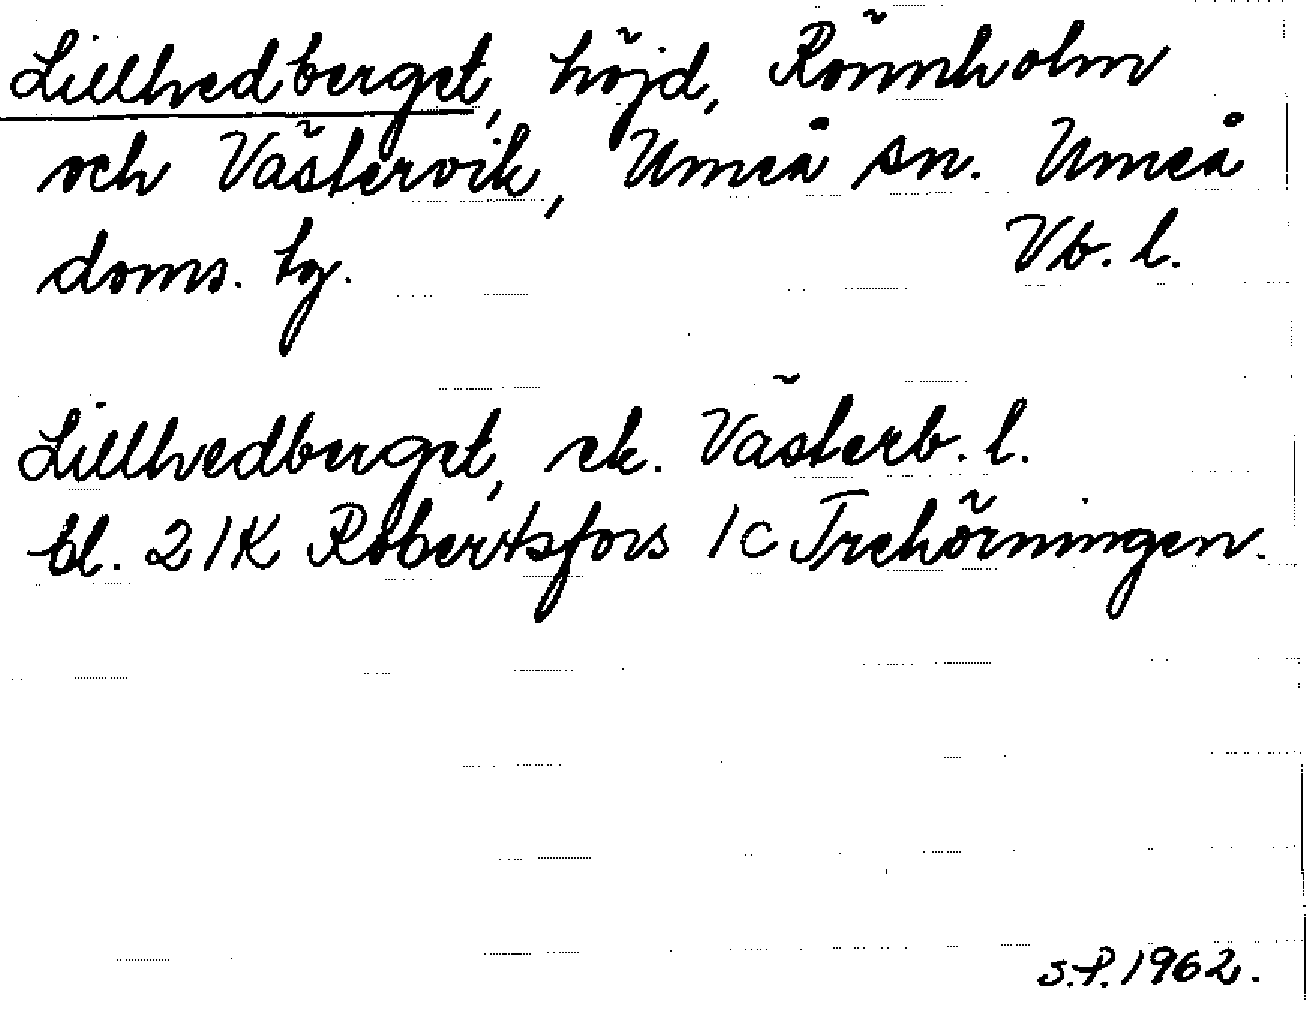 Lillhedberget, höjd, Rönnholm
och Västervik, Umeå sn. Umeå
doms. tg. Vb. l.
Lillhedberget, ek. Västerb. l.
bl. 21K Robertsfors 1c Trehörningen.
S.P. 1962.